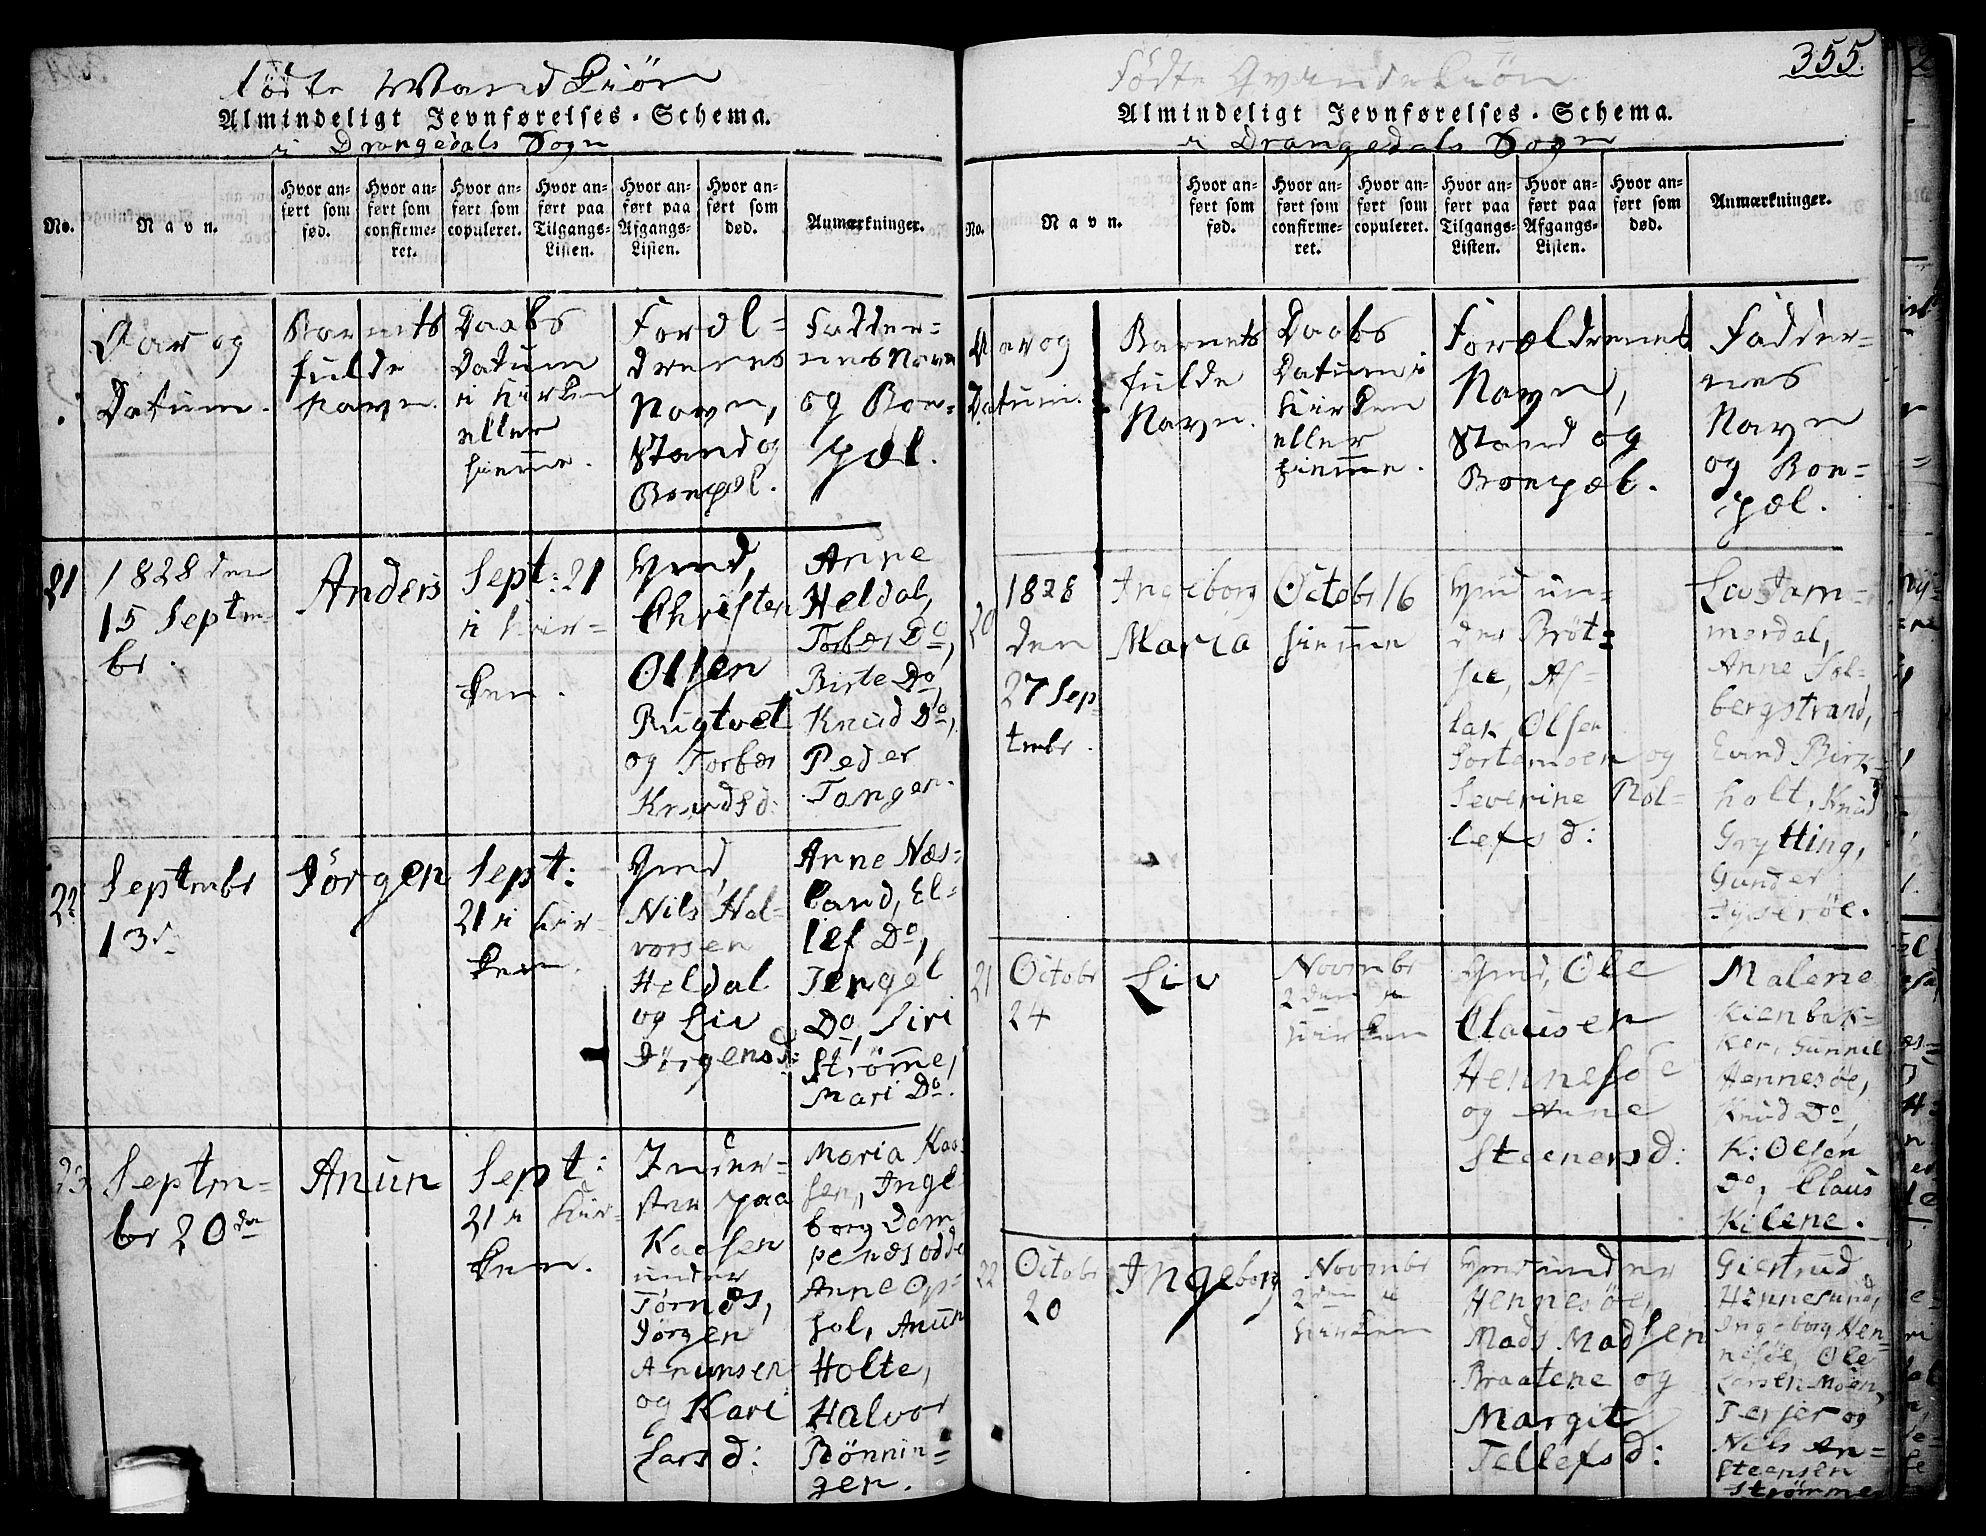 fødte Mandkiøn
Almindeligt Jevnførelses-Schema.
i Drangedals Sogn
No.
Navn.
Hvor an-
ført som
fød.
Hvor an-
ført som
confirme-
ret.
Hvor an-
ført som
copuleret.
Hvor an-
ført paa
Tilgangs-
Listen.
Hvor an-
ført paa
Afgangs-
Listen.
Hvor an-
ført som
død.
Anmærkninger.
Aar og
Datum.
Barnets
fulde
Navn.
Daabs
Datum
i Kirken
eller
hiemme.
Foræl=
drenes
Navn,
Stand og
Bopæl.
Fadder=
nes Navn
og Bo=
pæl.
21
1828 den
15 Septm=
br.
Anders
Sept: 21
i Kir=
ken.
Gmd,
Christen
Olsen
Rugtvet
og Torbør
Knudsd:
Anne
Heldal,
Torbør Do,
Birte Do,
Knud Do,
Peder
Tangen.
22
Septmbr
13d
Jörgen
Sept:
21 i Kir=
ken.
Gmd,
Nils Hal=
vorsen
Heldal
og Liv
Jörgensd:
Anne Næs=
land, El=
lef Do,
Tengel
Do, Siri
Strömme,
Mari Do.
23
Septm=
br 20de
Anun
Sept:
21 i Kir=
ken.
Inder=
ster paa
Kaasen
under
Törnes,
Jörgen
Anunsen
og Kari
Larsd:
Maria Kaa=
sen, Inge
borg Dam
penesodde
Anne Op=
sal, Anun
Holte,
Halvor
Bönnin=
gen.
355.
Fødte Qvindekiøn
Almindeligt Jevnførelses-Schema.
i Drangedals Sogn
No.
Navn.
Hvor an-
ført som
fød.
Hvor an-
ført som
confirme-
ret.
Hvor an-
ført som
copuleret.
Hvor an-
ført paa
Tilgangs-
Listen.
Hvor an-
ført paa
Afgangs-
Listen.
Hvor an-
ført som
død.
Anmærkninger.
Aar og
Datum.
Barnets
fulde
Navn.
Daabs
Datum i
Kirken
eller
hiemme.
Forældrenes
Navn,
Stand og
Bopæl.
Fadder=
nes
Navn
og Bo=
pæl.
20
1828
den
27 Sep=
tmbr.
Ingeborg
Maria
Octobr 16
hiemme
Hmd un=
der Bröt=
söe, As=
lak Olsen
og
Severine Rol=
lefsd:
Liv Tam=
merdal,
Anne Sol=
bergstrand,
Evind Birk=
holt, Knud
Grytting,
Gunder
21
Octobr
24
Liv
Novmbr
2den i
Kirken
Gmd, Ole
Clausen
Hennesöe
og Anne
Steenersd:
Malene
Kienbek=
ker, Gunnil
Hennesöe,
Knud Do,
K: Olsen
Do, Claus
Kilene.
22
Octobr
20
Ingeborg
Novmbr
2den i
Kirken
Hmd under
Hennesöe,
Mads Madsen
Braatene og
Margit
Tellefsd:
Giertrud
Hennesund,
Ingeborg Hen=
nesöe, Ole
Larsen Moen,
Terjer og
Nils An=
steensen
Strömme